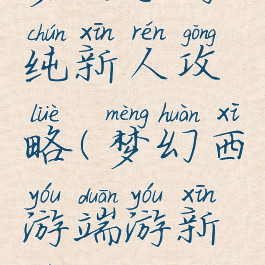 chún xīn rén gōng
纯新人攻
lüè mèng huàn xī
略(梦幻西
yóu duān yóu xīn
游端游新